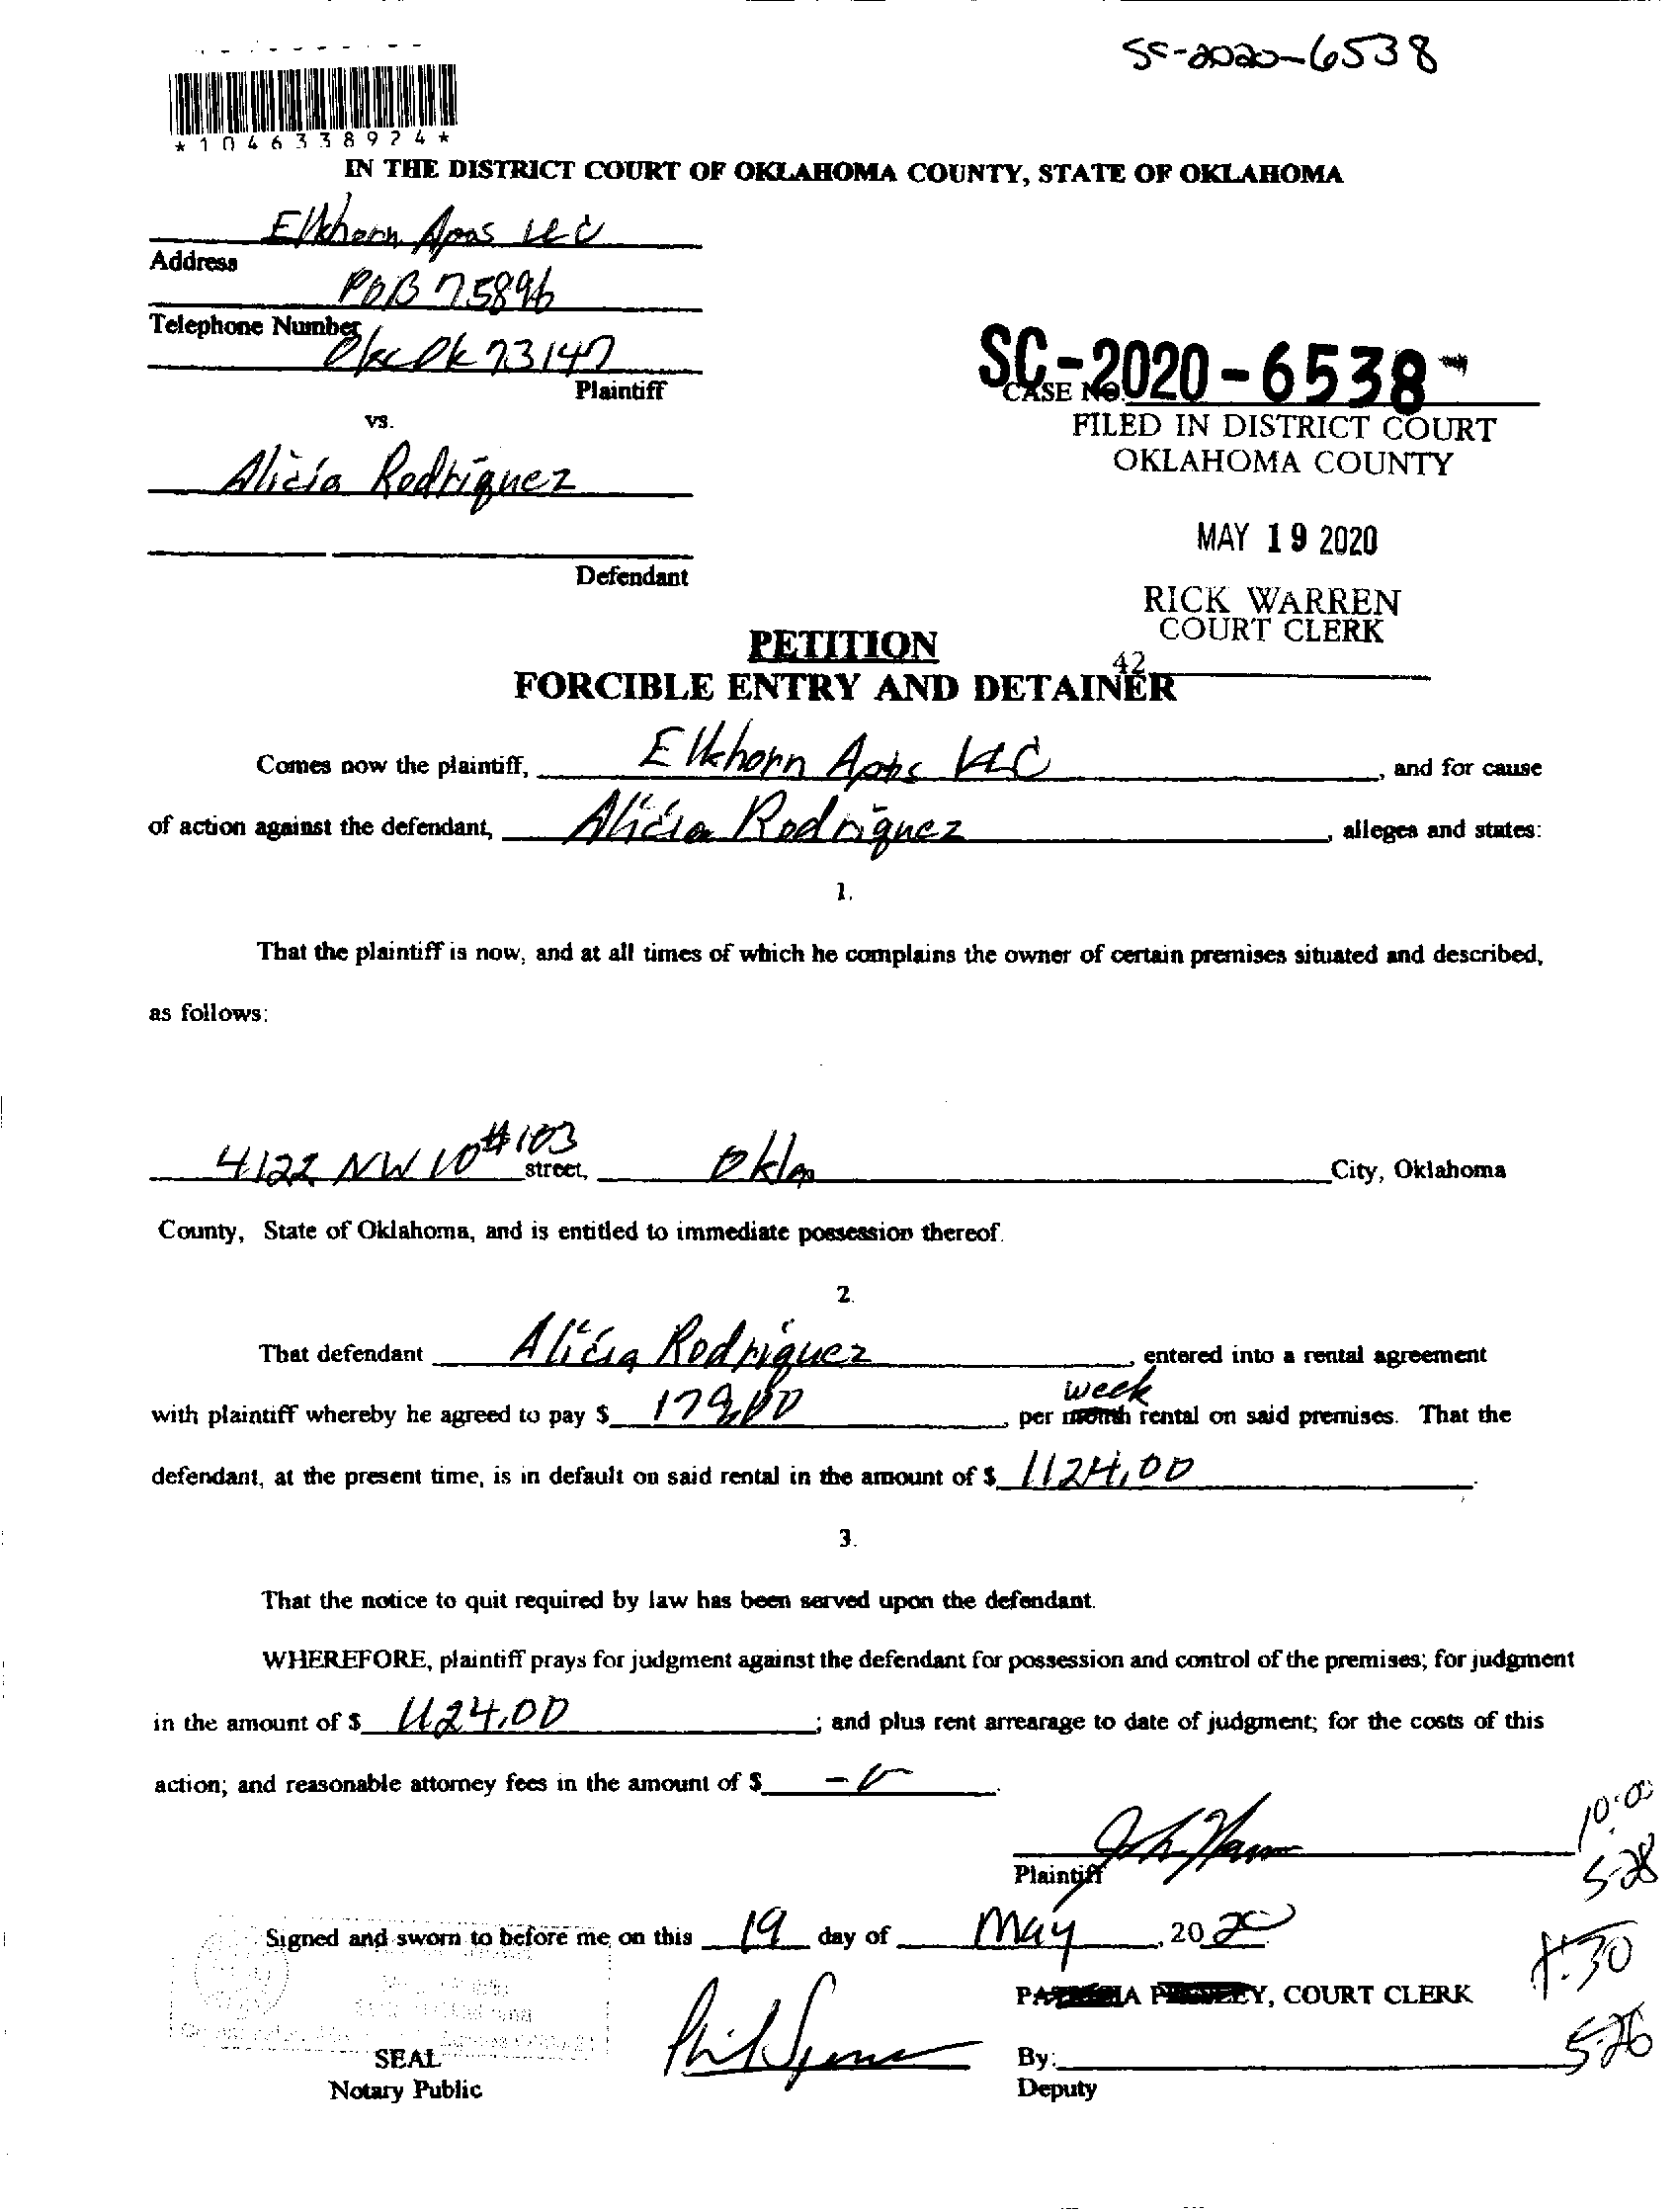 SS-2020-6538
*1046338924*
IN THE DISTRICT COURT OF OKLAHOMA COUNTY, STATE OF OKLAHOMA
Elkhorn Apts LLC
Address
POB 75896
Telephone Number
Okc Ok 73147
Plaintiff
SC-2020-6538-
CASE No.
vs.
FILED IN DISTRICT COURT
OKLAHOMA COUNTY
Alicia Rodriguez
MAY 19 2020
Defendant
RICK WARREN
COURT CLERK
42
PETITION
FORCIBLE ENTRY AND DETAINER
Comes now the plaintiff, Elkhorn Apts LLC, and for cause
of action against the defendant, Alicia Rodriguez, alleges and states:
1.
That the plaintiff is now, and at all times of which he complains the owner of certain premises situated and described,
as follows:
4122 NW 10 #103 street, Okla City, Oklahoma
County, State of Oklahoma, and is entitled to immediate possession thereof.
2.
That defendant Alicia Rodriguez, entered into a rental agreement
week
with plaintiff whereby he agreed to pay $ 179.00 per month rental on said premises. That the
defendant, at the present time, is in default on said rental in the amount of $ 1124.00.
3.
That the notice to quit required by law has been served upon the defendant.
WHEREFORE, plaintiff prays for judgment against the defendant for possession and control of the premises; for judgment
in the amount of $ 1124.00; and plus rent arrearage to date of judgment; for the costs of this
action; and reasonable attorney fees in the amount of $
10:00
Plaintiff
5-28
Signed and sworn to before me on this 19 day of May, 2020
PATRICIA PRESLEY, COURT CLERK
SEAL
By:
5-26
Notary Public
Deputy